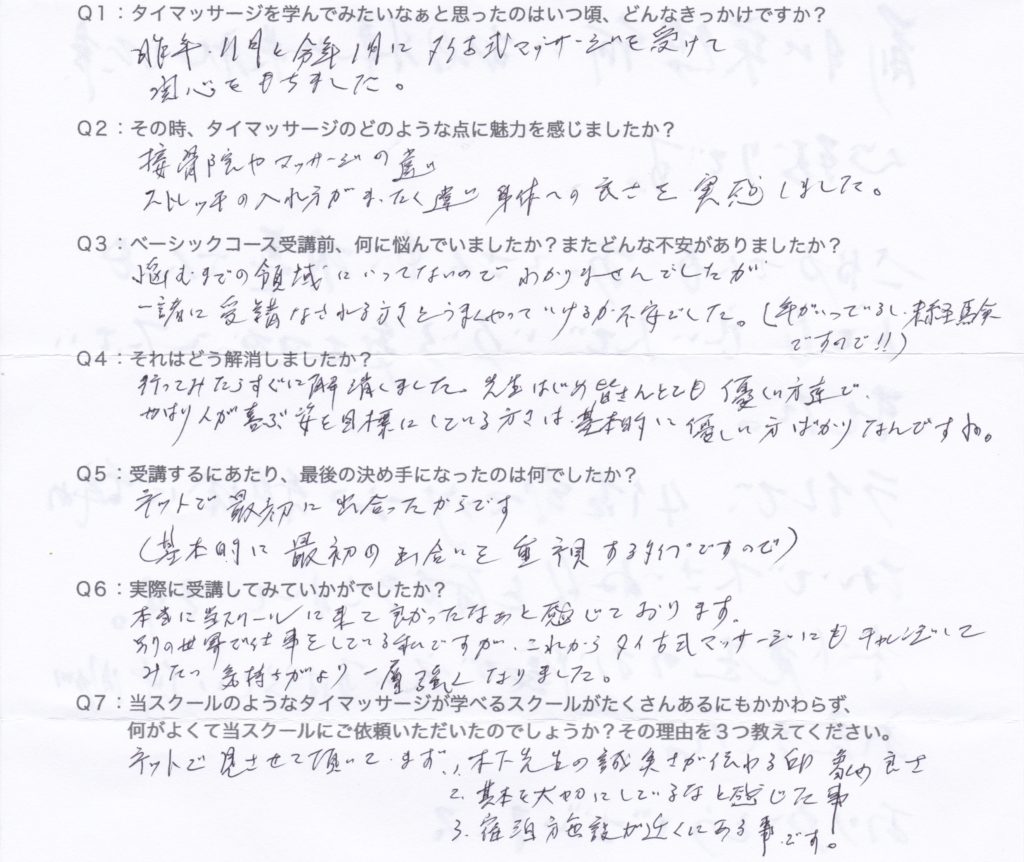 Q1：タイマッサージを学んでみたいなぁと思ったのはいつ頃、どんなきっかけですか？
昨年11月と今年1月にタイ古式マッサージを受けて
関心をもちました。
Q2：その時、タイマッサージのどのような点に魅力を感じましたか？
接骨院やマッサージの違い
ストレッチの入れ方がまったく違い 身体への良さを実感しました。
Q3：ベーシックコース受講前、何に悩んでいましたか？またどんな不安がありましたか？
悩むまでの領域にいってないのでわかりませんでしたが
一緒に受講なされる方々とうまくやっていけるか不安でした。（年がいっているし、未経験
ですので!!）
Q4：それはどう解消しましたか？
行ってみたらすぐに解消しました。先生はじめ皆さんとても優しい方達で、
やはり人が喜ぶ姿を目標にしている方々は、基本的に優しい方ばかりなんですね。
Q5：受講するにあたり、最後の決め手になったのは何でしたか？
ネットで最初に出合ったからです
（基本的に最初の出合いを重視するタイプですので）
Q6：実際に受講してみていかがでしたか？
本当に当スクールに来て良かったなぁと感じております。
別の世界で仕事をしている私ですが、これからタイ古式マッサージにもチャレンジして
みたい気持ちがより一層強くなりました。
Q7：当スクールのようなタイマッサージが学べるスクールがたくさんあるにもかかわらず、
何がよくて当スクールにご依頼いただいたのでしょうか？その理由を３つ教えてください。
ネットで見させて頂いてまず、1、木下先生の誠実さが伝わる印象の良さ
2、基本を大切にしているなと感じた事
3、宿泊施設が近くにある事です。